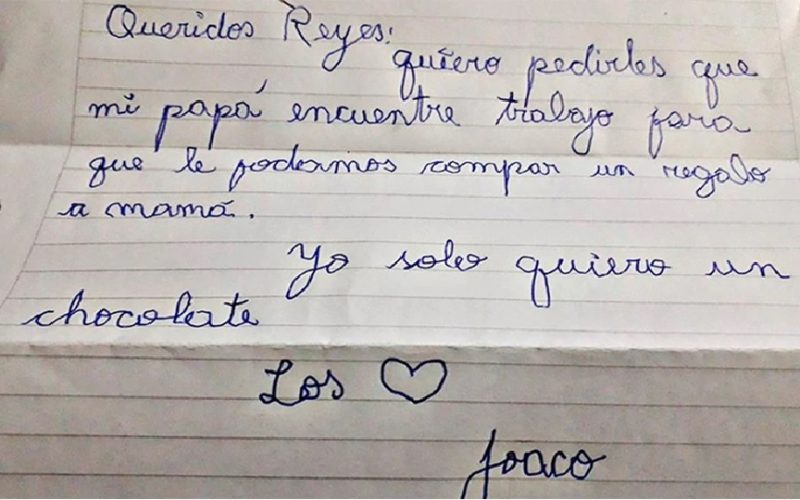 Queridos Reyes:
quiero pedirles que
mi papá encuentre trabajo para
que le podamos compar un regalo
a mamá.
Yo solo quiero un
chocolate
Los ♡
Joaco